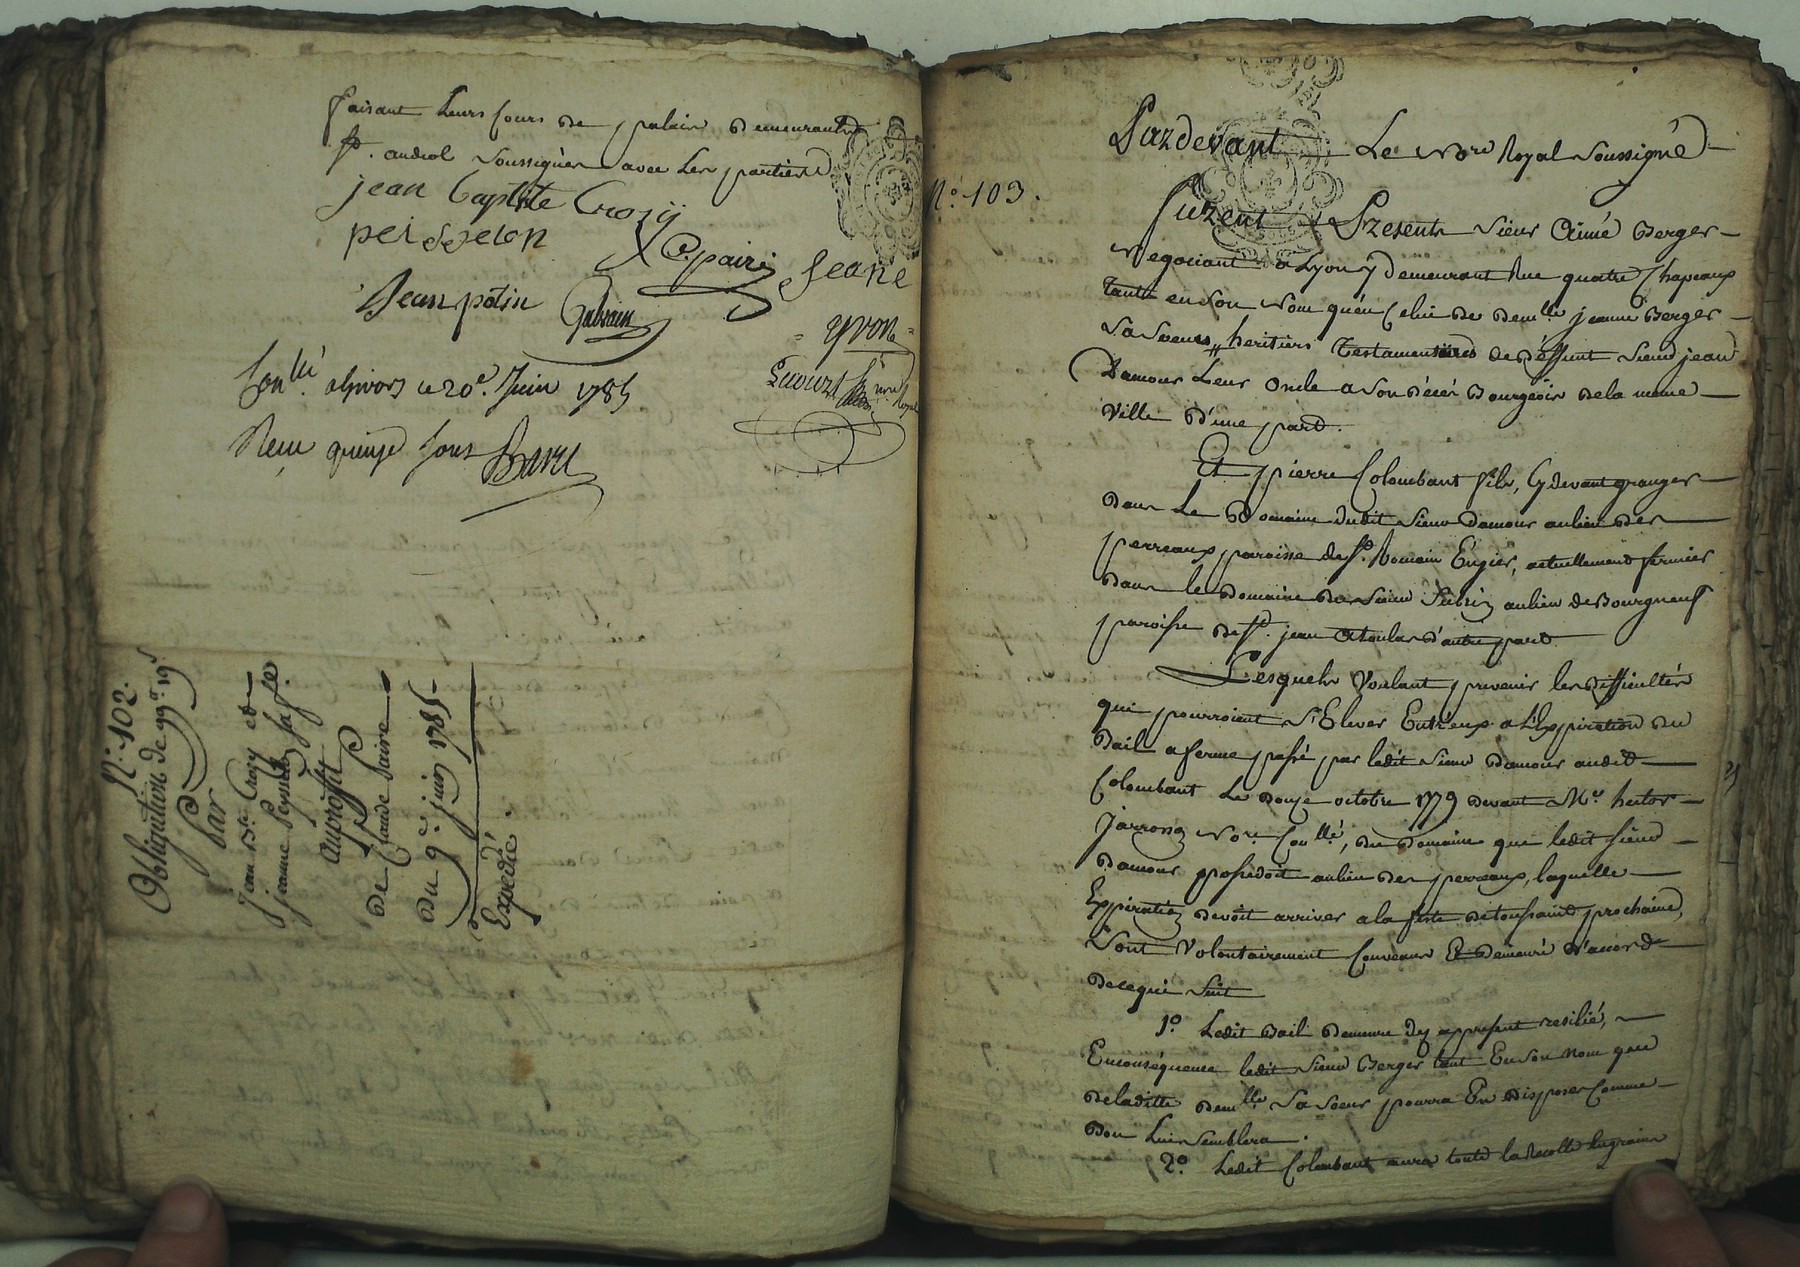 faisant Leurs Cours de palais demeurants
St. andeol soussignés avec Les parties
jean baptiste Crozij
peisselon
C. paire Jeane
yvon
Jean potin
Conllé. a Givors ce 20e. Juin 1785
Reçu quinze sous
N°. 102.
Obligation de 99ll 19s
Par
Jean Bte. Crozy et
jeanne Peysselon sa fe.
Auproffit
De Claude Paire
Du 9e. juin 1785
Expédié.
N°. 103.
Pardevant Le Nore Royal soussigné
Furent Presents sieur Aimé Berger
Negociant a Lyon y demeurant Rue quatre Chapeaux
tant en son Nom qu'en Celui de Demlle jeanne Berger
sa soeur, heritiers testamentaires de deffunt sieur jean
Damour Leur Oncle a son décès Bourgeois de la meme
Ville d'une part.
Et pierre Colombant fils, Cy devant granger
dans Le Domaine dudit sieur Damour au lieu des
perreaux paroisse de St. Romain En gier, actuellement fermier
dans le Domaine du sieur au lieu de Bourgneuf
paroisse de St. jean a toulas d'autre part
Lesquels Voulant prevenir les difficultés
qui pourroient s'Elever Entreux a L'Expiration du
Bail a ferme passé par ledit sieur Damour audit
Colombant Le douze octobre 1779 devant Me. hector
Jarron Nore. Conllé, du Domaine que ledit sieur
Damour possedoit au lieu des perreaux, laquelle
Expiration devoit arriver a la feste de toussaint prochaine,
sont Volontairement Convenus Et demeuré d'accord
de ce qui suit
1°. Ledit Bail demeure des apresent resilié,
En conséquence ledit sieur Berger tant En son Nom que
de laditte Demlle sa soeur pourra En disposer Comme
Bon Lui semblera.
2°. Ledit Colombant aura toute la Recolte En grains